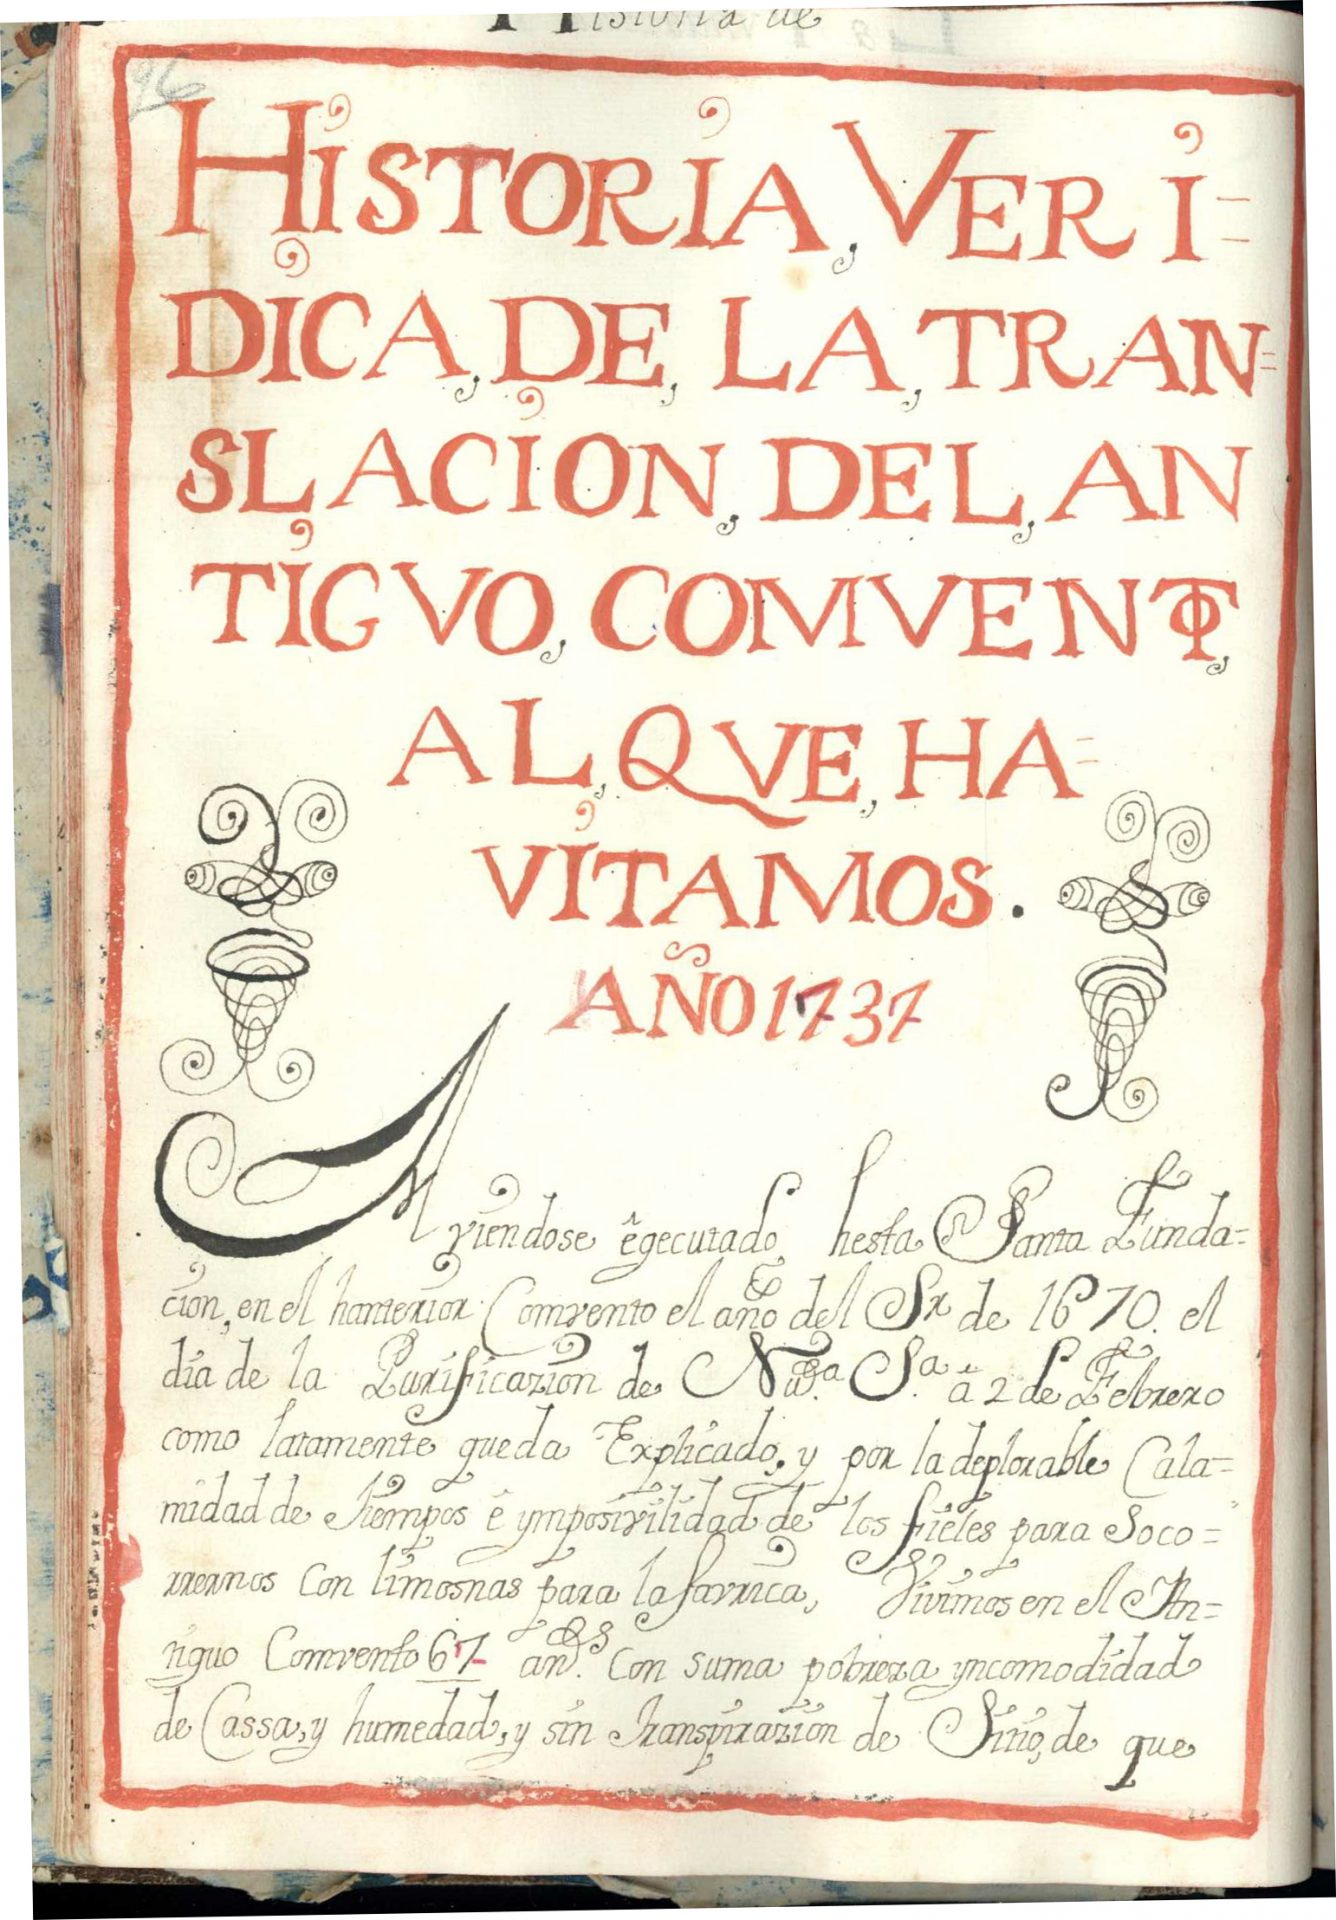 Historia de
96
HISTORIA, VERI=
DICA, DE, LA, TRAN=
SLACION, DEL, AN
TIGVO, COMVENTO,
AL, QVE, HA=
VITAMOS.
AÑO 1737
Aviendose êgecutado, hesta Santa Funda=
cion, en el hanterior Comvento el año del Sr de 1670. el
dia de la Purificazion de Nũa. Sa. â 2 de Febrero
como latamente queda Explicado, y por la deplorable Cala=
midad de tiempos ê ymposivilidad de los fieles para Soco=
rrernos con limosnas para la favrica, Vivimos en el An=
tiguo Comvento 67 ans. con suma pobreza yncomodidad
de Cassa, y humedad, y sin transpirazion de Sitio, de que